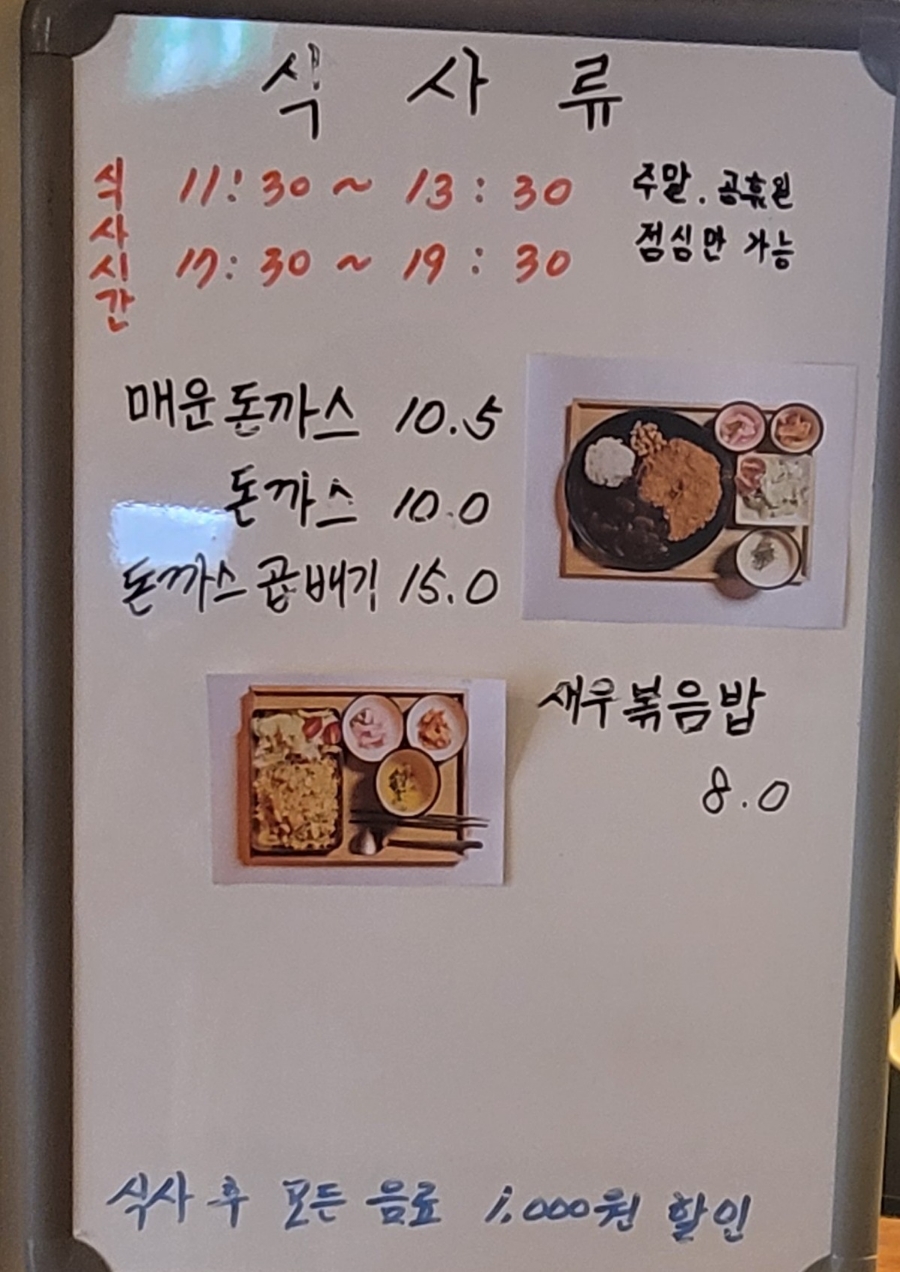 식사류
식사시간
11:30 ~ 13:30
17:30 ~ 19:30
주말.공휴일
점심만 가능
매운돈까스 10.5
돈까스 10.0
돈까스곱배기 15.0
새우볶음밥
8.0
식사 후 모든 음료 1,000원 할인